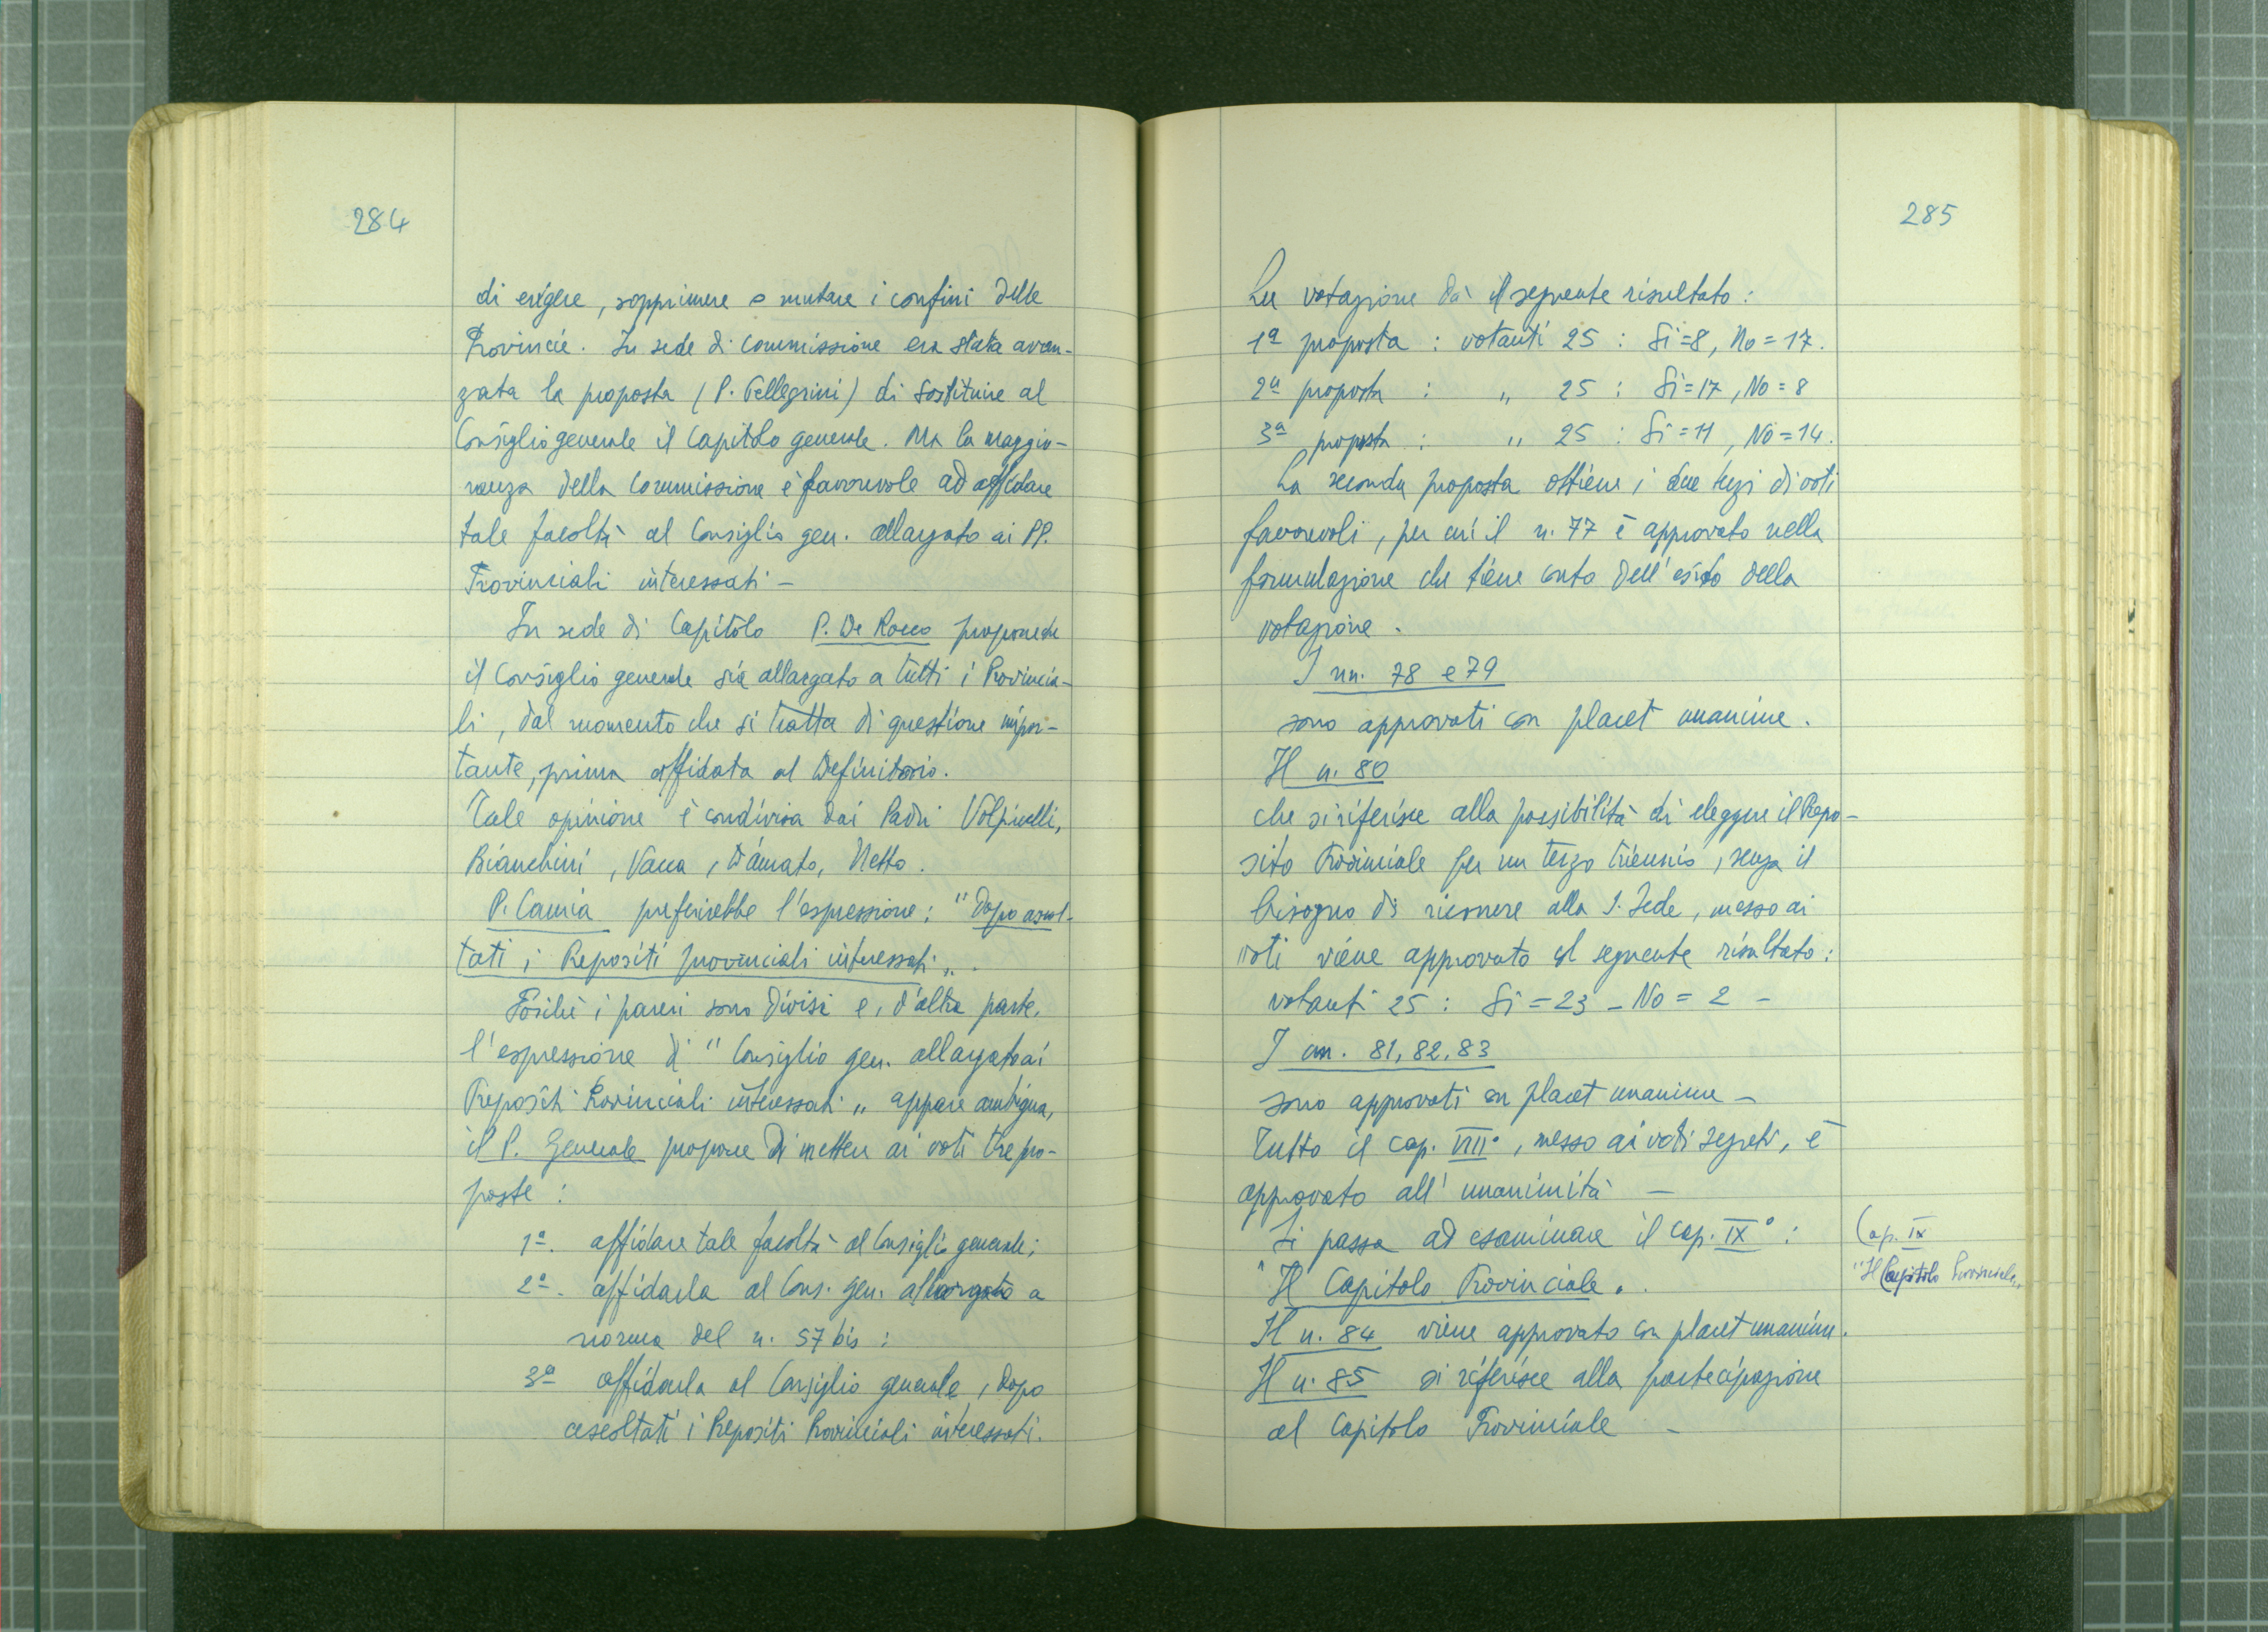 284
di erigere, sopprimere o mutare i confini delle
Provincie. In sede di commissione era stata avan-
zata la proposta (P. Pellegrini) di sostituire al
Consiglio generale il Capitolo generale. Ma la maggio-
ranza della Commissione è favorevole ad affidare
tale facoltà al Consiglio gen. allargato ai PP.
Provinciali interessati -
In sede di Capitolo P. De Rocco propone che
il Consiglio generale sia allargato a tutti i Provincia-
li, dal momento che si tratta di questione impor-
tante, prima affidata al Definitorio.
Tale opinione è condivisa dai Padri Volpicelli,
Bianchini, Vacca, D'Amato, Netto.
P. Camia preferirebbe l'espressione: "Dopo ascol-
tati i Prepositi provinciali interessati".
Poiché i pareri sono divisi e, d'altra parte,
l'espressione di "Consiglio gen. allargato ai
Prepositi Provinciali interessati" appare ambigua,
il P. Generale propone di mettere ai voti tre pro-
poste:
1ª. affidare tale facoltà al Consiglio generale;
2ª. affidarla al Cons. gen. allargato a
norma del n. 57 bis;
3ª affidarla al Consiglio generale, dopo
ascoltati i Prepositi Provinciali interessati.
285
La votazione dà il seguente risultato:
1ª proposta: votanti 25: Si=8, No=17.
2ª proposta: " 25: Si=17, No=8
3ª proposta: " 25: Si=11, No=14.
La seconda proposta ottiene i due terzi di voti
favorevoli, per cui il n. 77 è approvato nella
formulazione che tiene conto dell'esito della
votazione.
I nn. 78 e 79
sono approvati con placet unanime.
Il n. 80
che si riferisce alla possibilità di eleggere il Prepo-
sito Provinciale per un terzo triennio, senza il
bisogno di ricorrere alla S. Sede, messo ai
voti viene approvato col seguente risultato:
votanti 25: Si=23 - No=2 -
I nn. 81, 82, 83
sono approvati con placet unanime -
Tutto il cap. VIII°, messo ai voti segreti, è
approvato all'unanimità -
Si passa ad esaminare il cap. IX°:
"Il Capitolo Provinciale".
Il n. 84 viene approvato con placet unanime.
Il n. 85 si riferisce alla partecipazione
al Capitolo Provinciale -
Cap. IX
"Il Capitolo Provinciale"